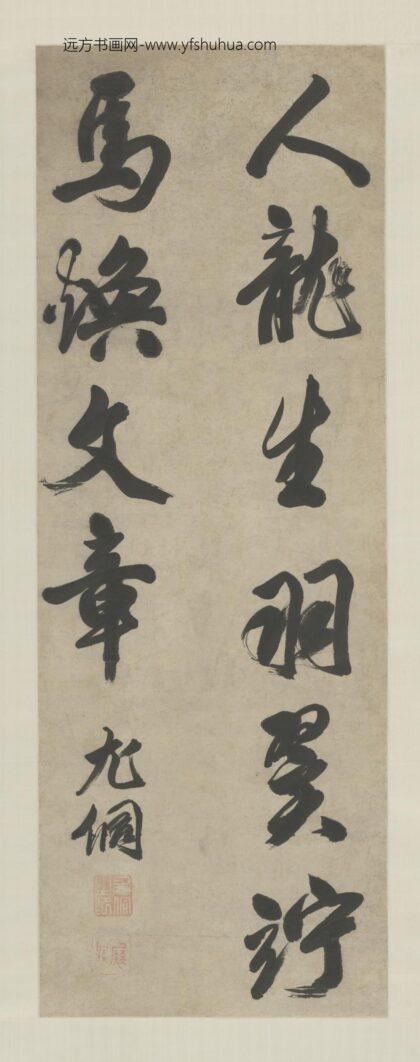 远方书画网-www.yfshuhua.com
人龍生羽翼竚
馬煥文章
尤侗